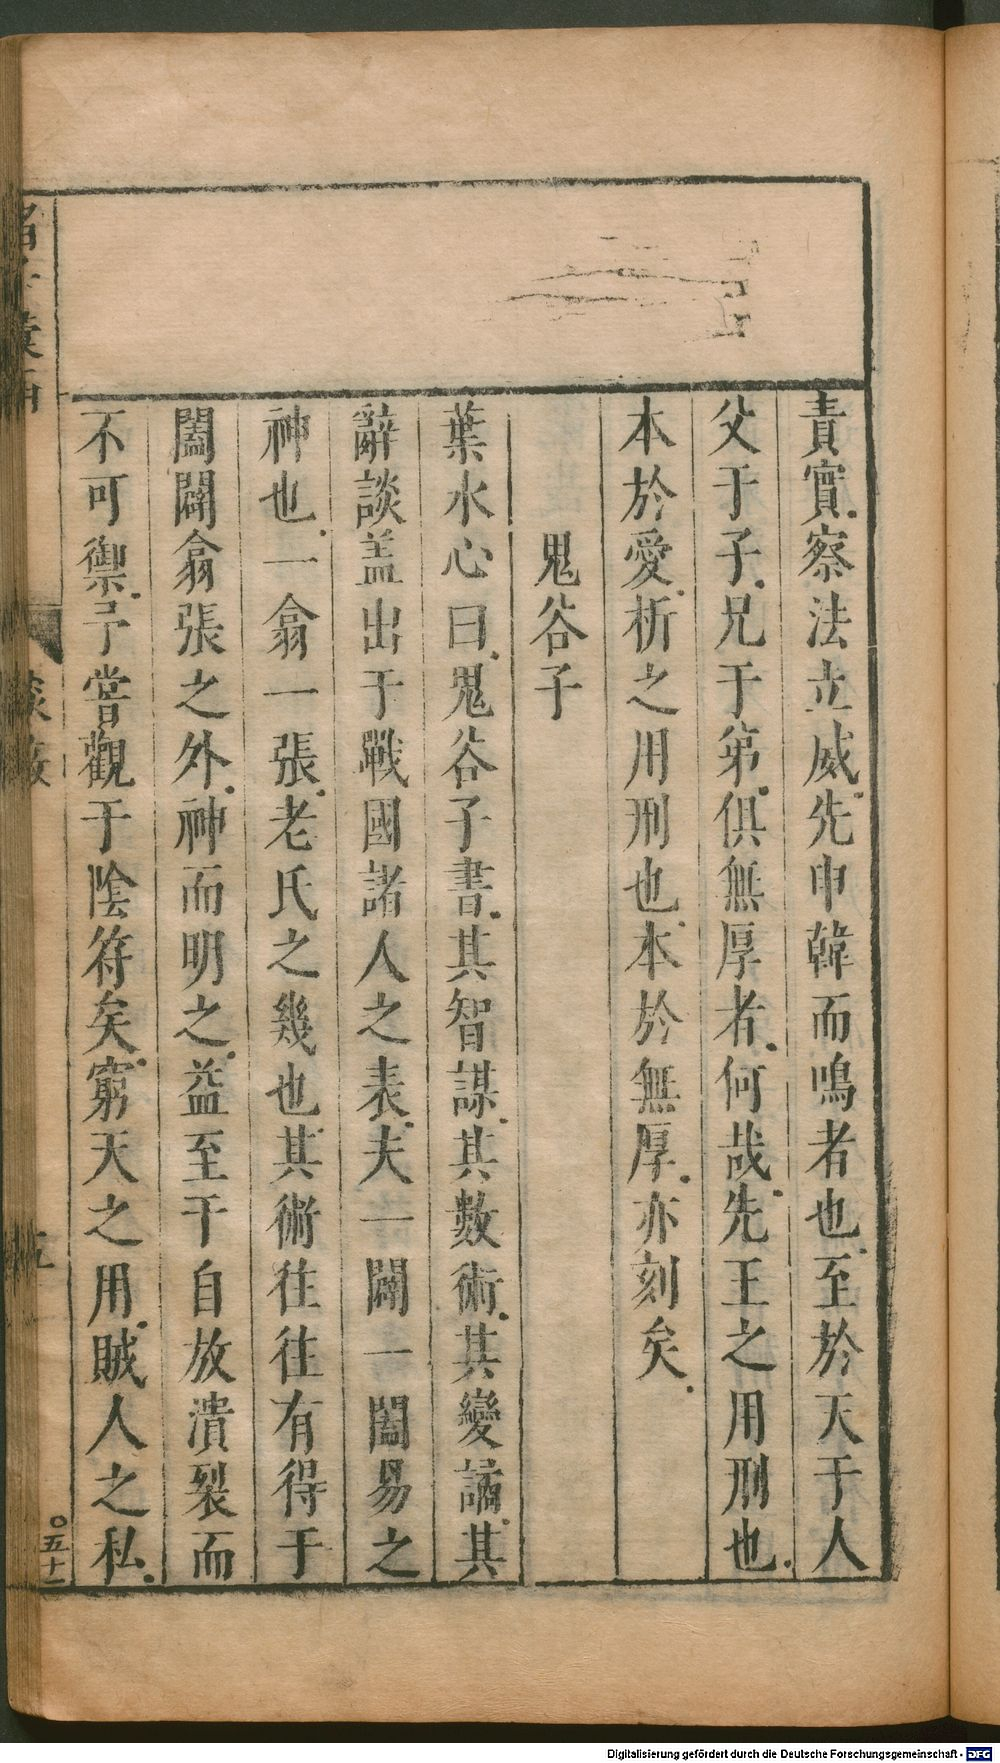 責實察法立威先申韓而鳴者也至於天于人
父于子兄于第俱無厚者何哉先王之用刑也
本於愛析之用刑也本於無厚亦刻矣
鬼谷子
葉水心曰鬼谷子書其智謀其數術其變譎其
辭談盖出于戰國諸人之表夫一闢一闔易之
神也一翕一張老氏之幾也其術往往有得于
闔闢翕張之外神而明之益至于自放潰裂而
不可禦予嘗觀于陰符矣窮天之用賊人之私
〇五十一
Digitalisierung gefördert durch die Deutsche Forschungsgemeinschaft - DFG